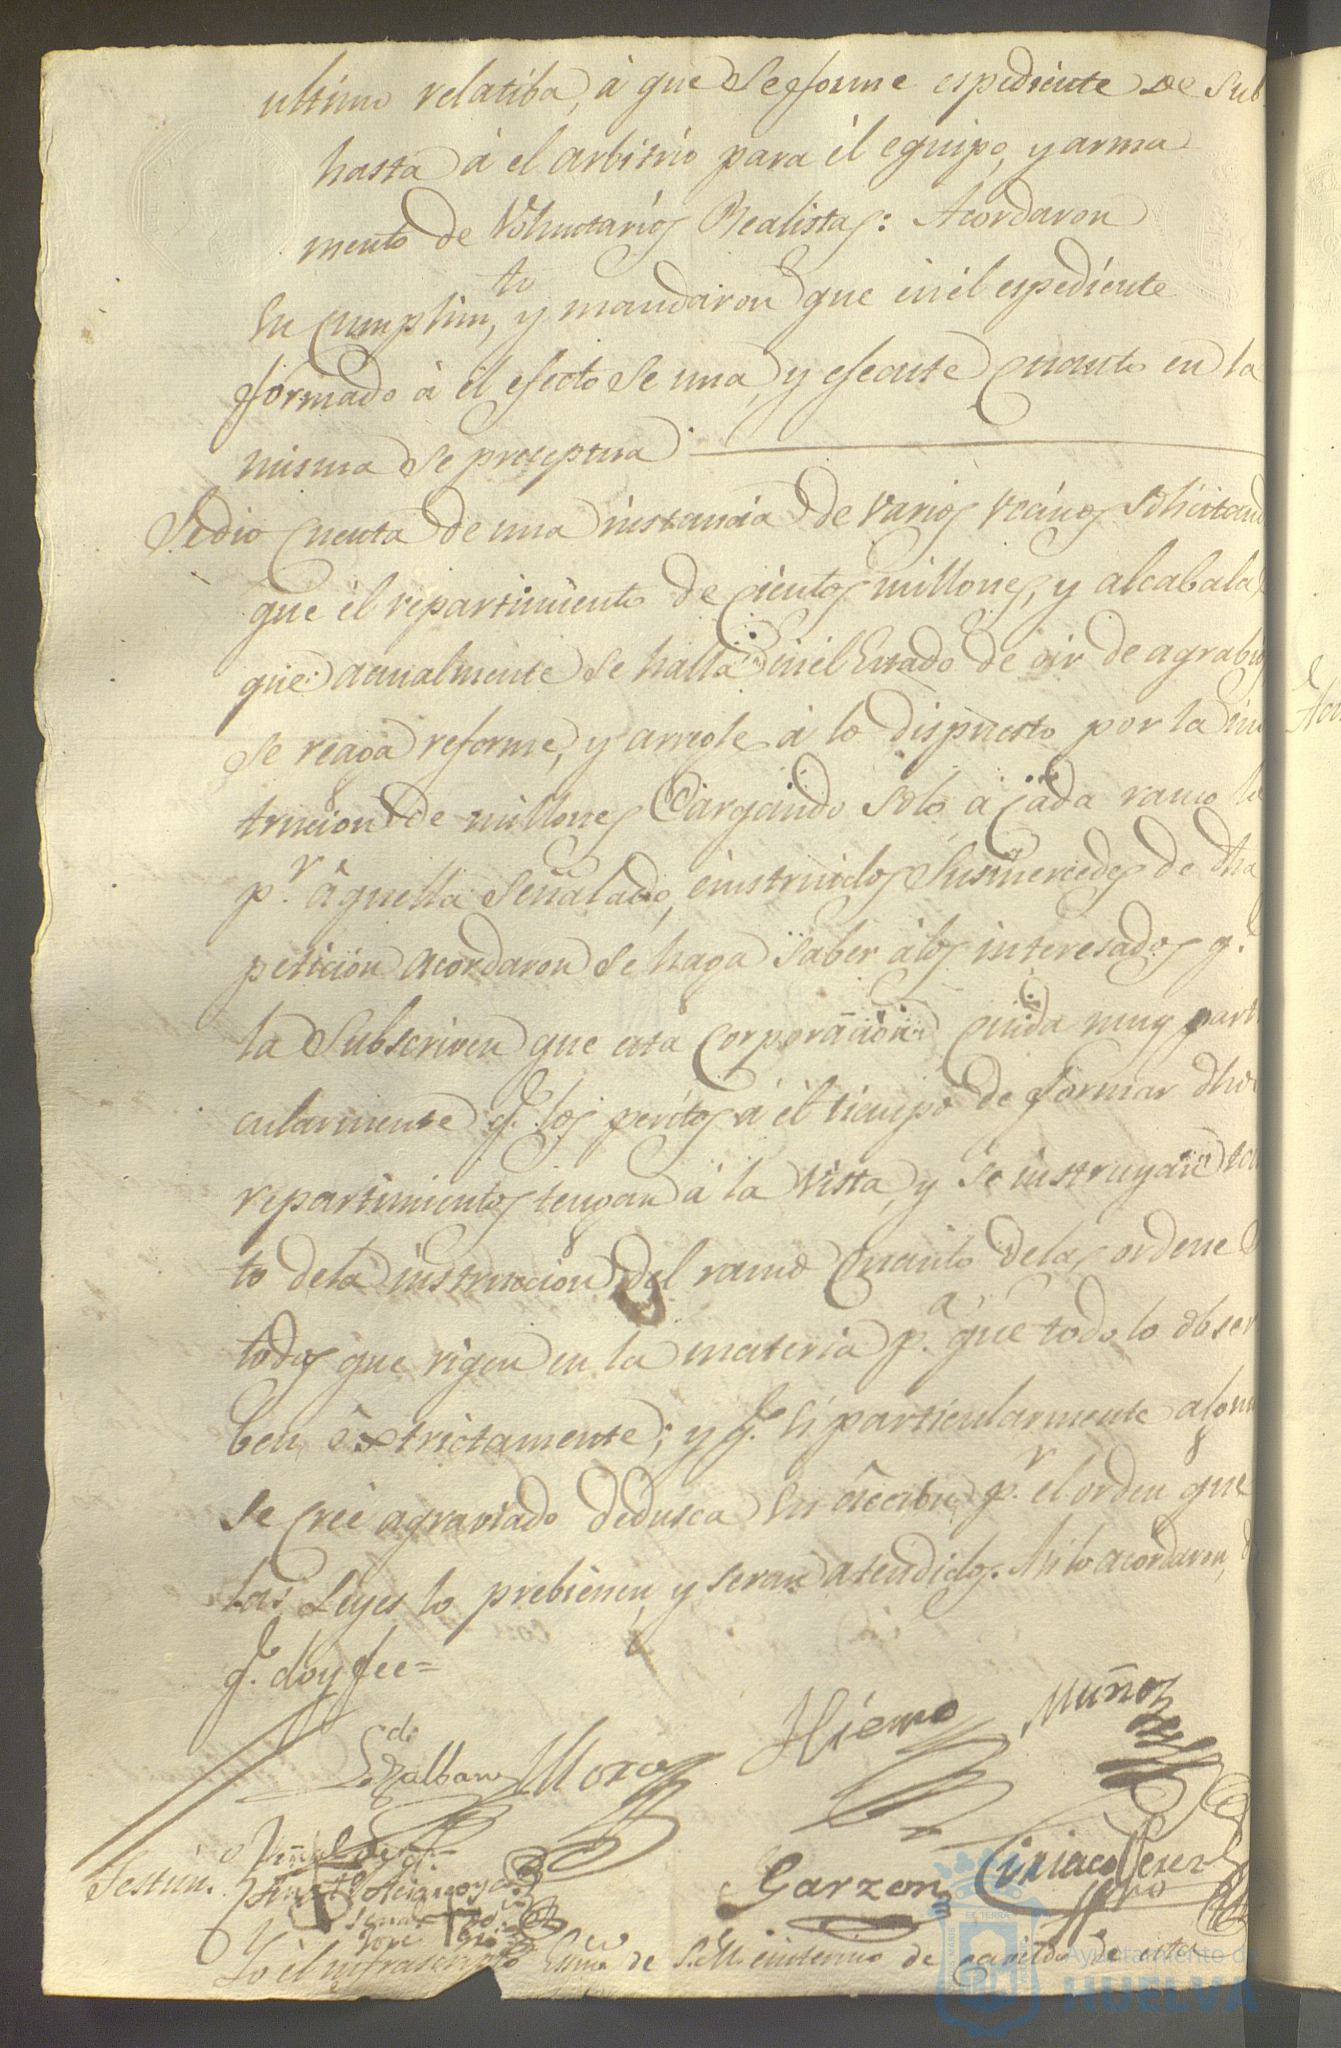 ultimo relatiba, á que se forme espediente de sub
hasta á el arbitrio para él equipo, y arma
mento de Voluntarios Realistas: Acordaron
su cumplim.to y mandaron que en él espediente
formado á el efecto se una, y efecute quanto en la
misma se preceptua
Se dio cuenta de una instancia de varios vecinos solicitand
que el repartimiento de cientos millones, y alcabalas
que actualmente se halla en el estado de oir de agrabios
se reaga reforme, y arregle á lo dispuesto por la ins
truccion de millones Cargando solo a cada ramo lo
p.r aquella señalado, é instruidos Sus mercedes de dha
peticion acordaron se haga saber á los interesados q.e
la Subscriven que esta Corporacion cuida muy parti
cularmente q.e los peritos á él tiempo de formar dhos
repartimientos tengan á la vista, y se instruyan tan
to de la instruccion del ramo quanto de las ordenes
todas que rigen en la materia p.a que todo lo obser
ben extrictamente; y q.e si particularmente alguno
se cree agraviado dedusca su accion p.r el orden que
las Leyes lo prebienen, y seran atendidos. Asi lo acordaron, d
q.e doy fee=
Moro
Hierro
Muñoz
Garzon
Ciriaco Perez
Yo él infrascripto Essno de S.M. interino de cavildo de esta
Ayuntamiento de
HUELVA